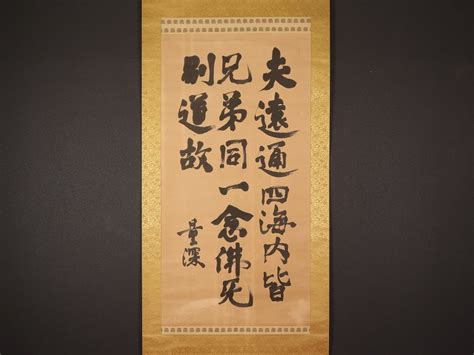 夫遠通四海内皆
兄弟同一念佛无
別道故
量深